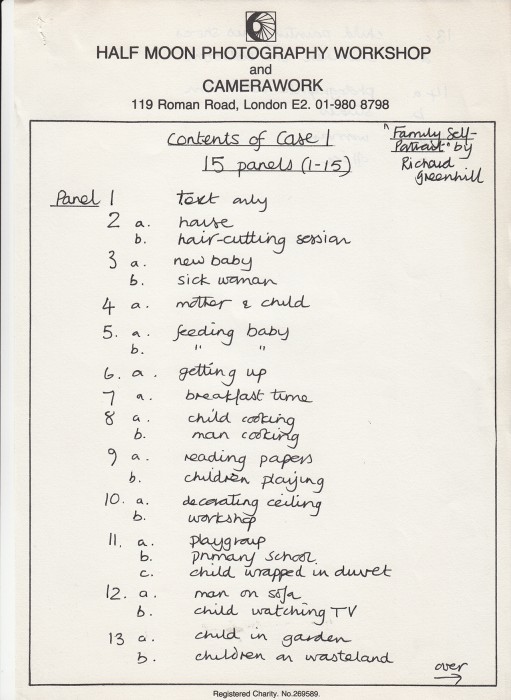 HALF MOON PHOTOGRAPHY WORKSHOP
and
CAMERAWORK
119 Roman Road, London E2. 01-980 8798
Contents of Case 1
15 panels (1-15)
"Family Self-
Portrait" by
Richard
Greenhill
Panel 1 Text only
2 a. house
b. hair-cutting session
3 a. new baby
b. sick woman
4 a. mother & child
5. a. feeding baby
b. " "
6. a. getting up
7 a. breakfast time
8 a. child cooking
b. man cooking
9 a. reading papers
b. children playing
10. a. decorating ceiling
b. workshop
11. a. playgroup
b. primary school.
c. child wrapped in duvet
12. a. man on sofa
b. child watching TV
13 a. child in garden
b. children on wasteland
over →
Registered Charity. No.269589.